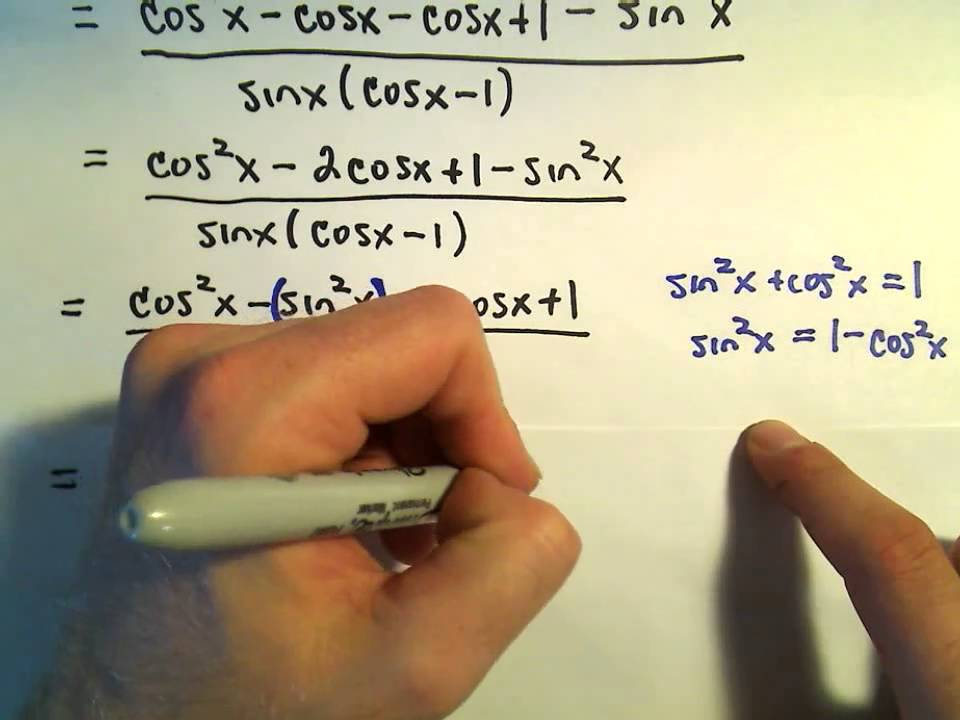 = cos x - cosx - cosx + 1 - sin x
sinx (cosx - 1)
= cos²x - 2cosx + 1 - sin²x
sinx (cosx - 1)
= cos²x - (sin²x) osx + 1
sin²x + cos²x = 1
sin²x = 1 - cos²x
=
Permanent Marker